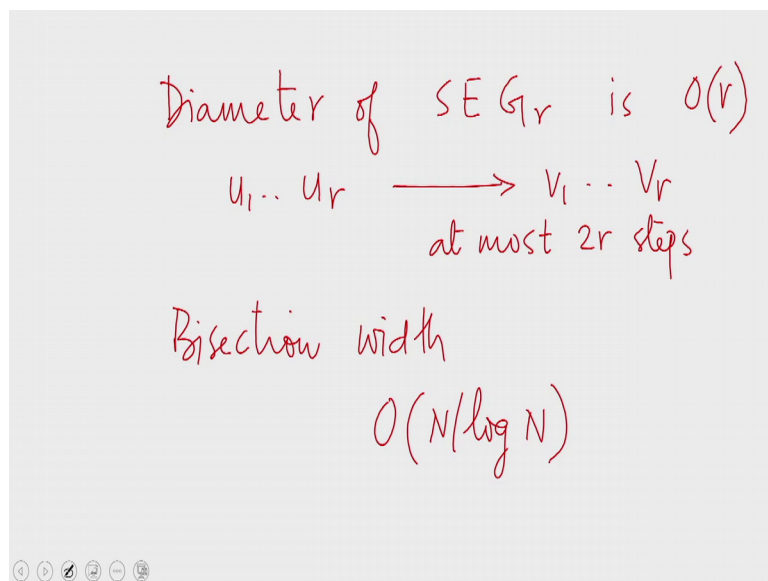 Diameter of SEGr is O(r)
u1.. ur → v1 .. vr
at most 2r steps
Bisection width
O(N/log N)